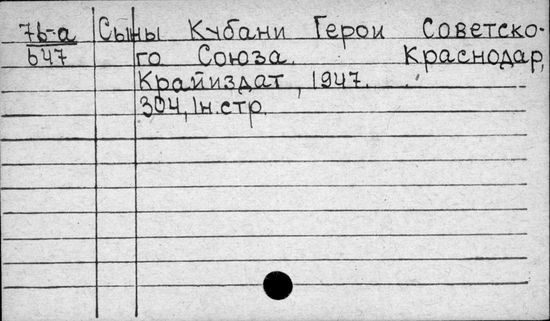 76-а Сыны Кубани Герои Советско-
647 го Союза. Краснодар,
Крайиздат, 1947.
304, 1н.стр.